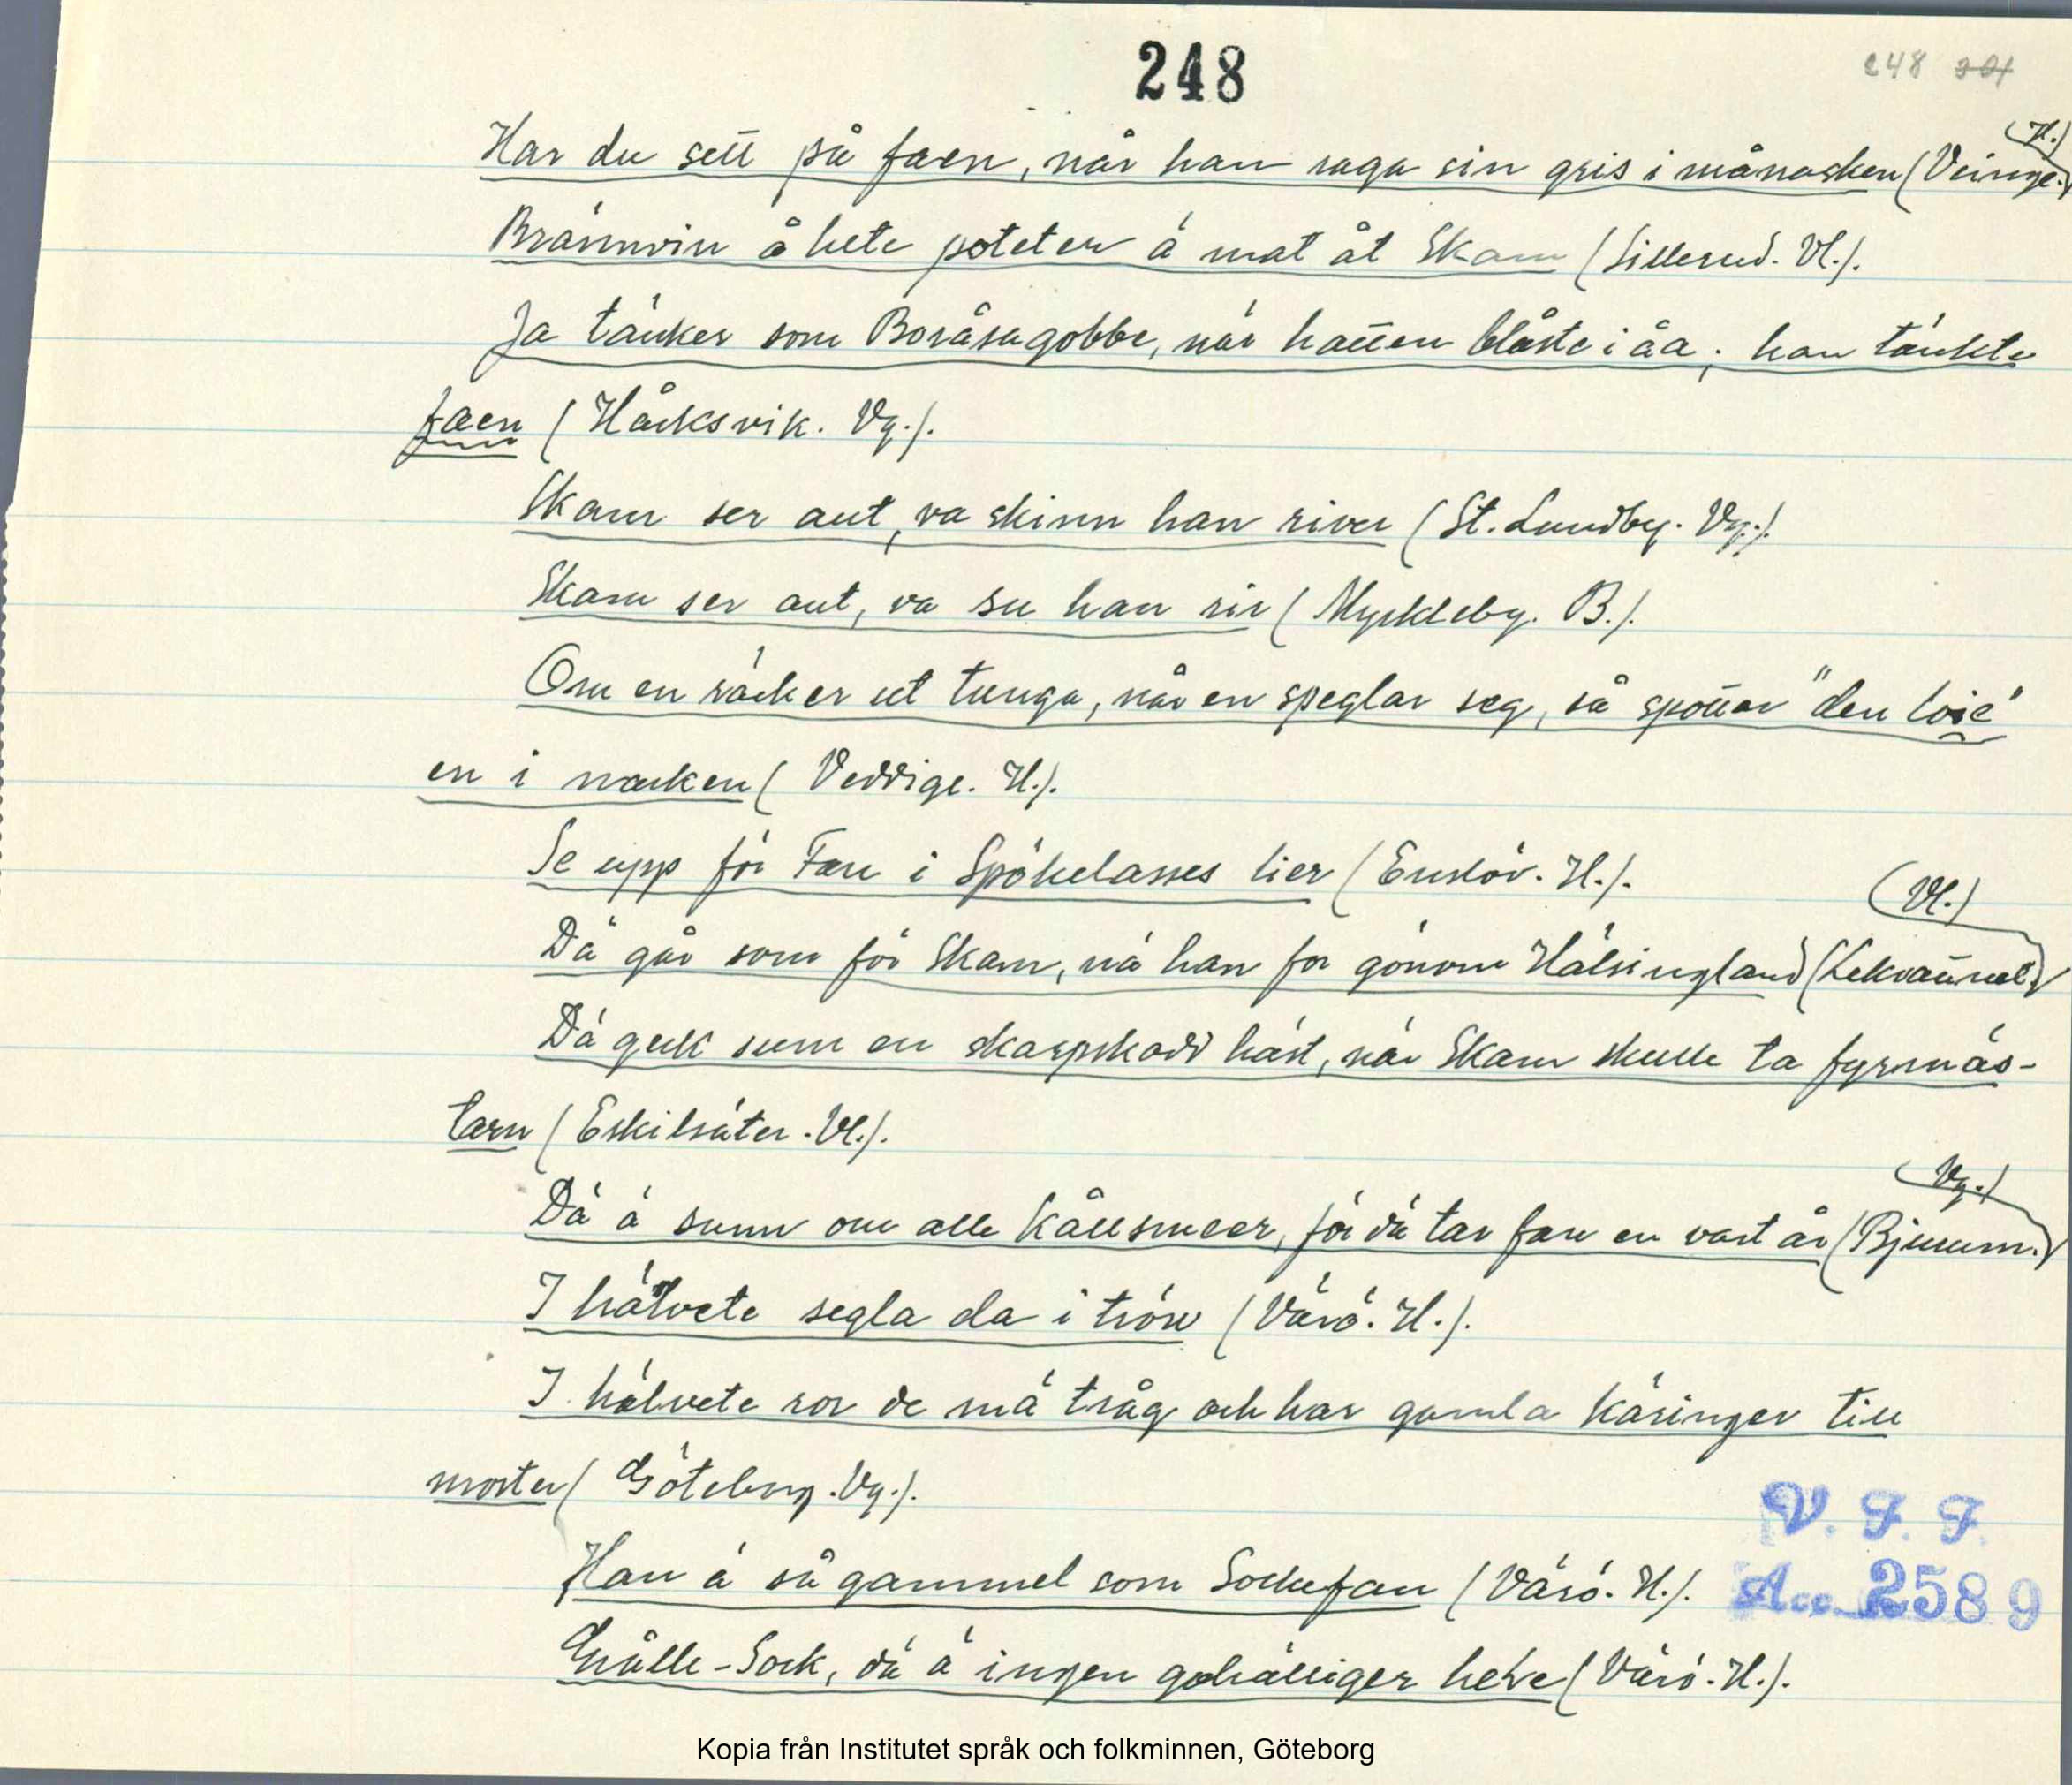 248
248 201
Har du sett på faen, når han raga sin gris i månasken (Veinge. H.)
Brännvin å hete poteter ä mat åt Skam (Sillerud. Vl.).
Ja tänker som Boråsagobbe, når hatten blåste i åa; han tänkte
faen (Håcksvik. Vg.).
Skam ser aut, va skinn han river (St. Lundby. Vg.).
Skam ser aut, va su han rir (Myckleby. B.).
Om en räcker ut tunga, når en speglar seg, så spottar "den löie"
en i nacken (Veddige. H.).
Se upp för Fan i Spökelasses lier (Enslöv. H.).
Dä går som för Skam, nä han for gönom Hälsingland (Lekvattnet. Vl.)
Dä gick sum en skarpskodd häst, när Skam skulle ta fyrmäs-
tarn (Eskilsäter. Vl.).
Dä ä sunn om alle kållsmeer, för dä tar fan en vart år (Bjurum. Vg.)
I hälvete segla da i trön (Värö. H.).
I hälvete ror de mä tråg och har gamla käringer till
morter (Göteborg. Vg.).
Han ä så gammel som Sockefan (Värö. H.).
Grålle-Sock, dä ä ingen gohälliger helve (Värö. H.).
V. F. F.
Acc. 2589
Kopia från Institutet språk och folkminnen, Göteborg